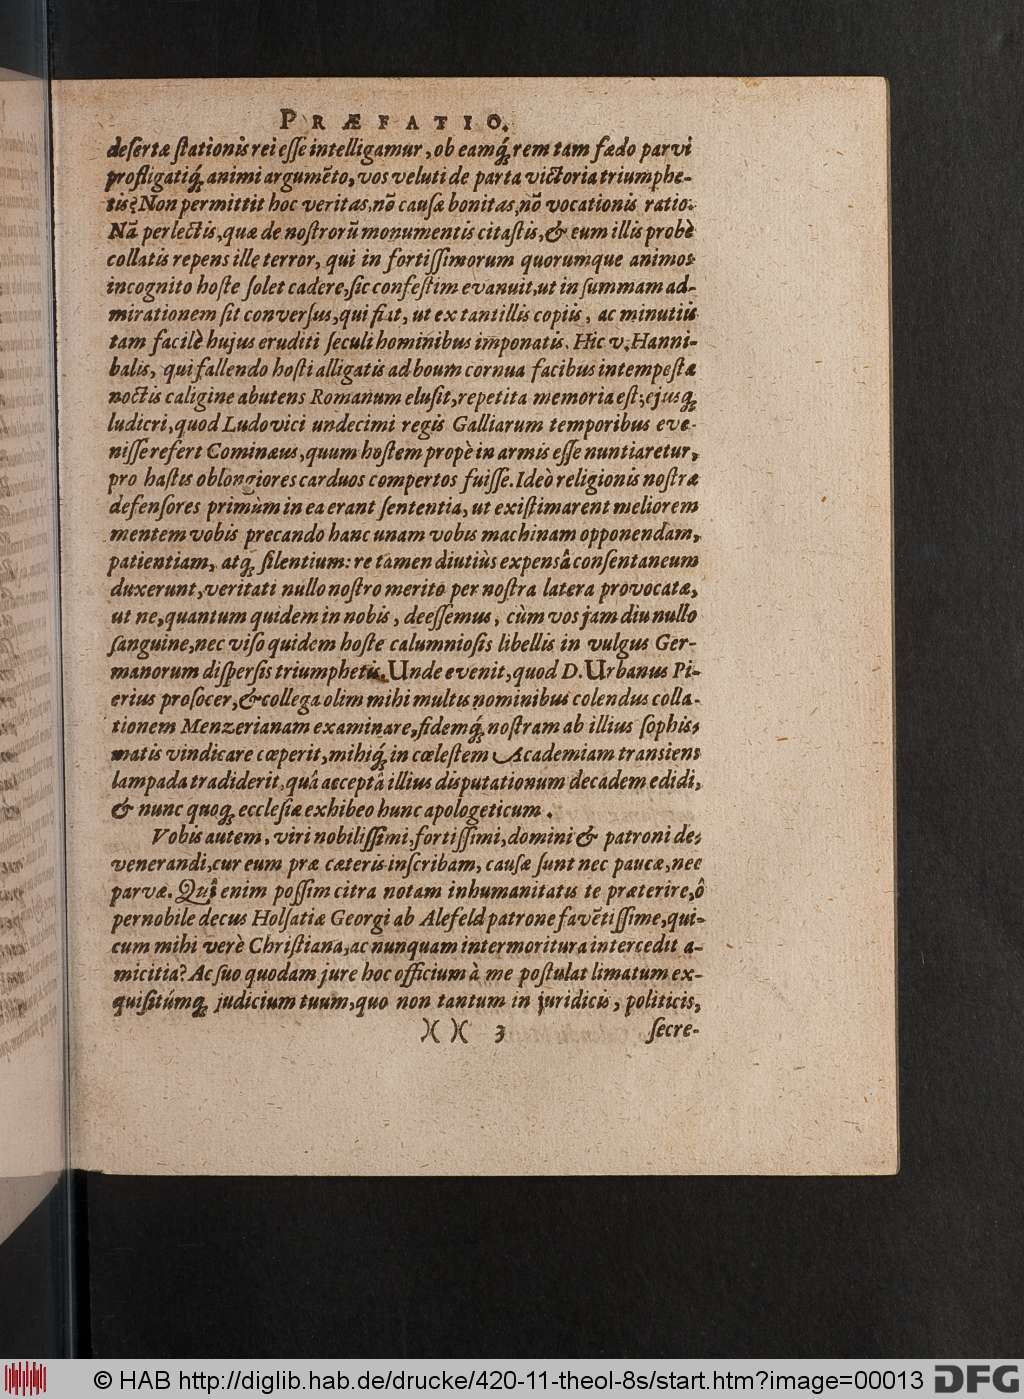 PRÆFATIO.
desertæ stationis rei esse intelligamur, ob eamq́; rem tam fædo parvi
profligatiq́; animi argumẽto, vos veluti de parta victoria triumphe-
tis? Non permittit hoc veritas, nõ causæ bonitas, nõ vocationis ratio.
Nã perlectis, quæ de nostrorũ monumentis citastis, & eum illis probè
collatis repens ille terror, qui in fortissimorum quorumque animos
incognito hoste solet cadere, sic confestim evanuit, ut in summam ad-
mirationem sit conversus, qui fiat, ut ex tantillis copiis, ac minutiis
tam facilè hujus eruditi seculi hominibus imponatis. Hic v. Hanni-
balis, qui fallendo hosti alligatis ad boum cornua facibus intempestæ
noctis caligine abutens Romanum elusit, repetita memoria est; ejusq;
ludicri, quod Ludovici undecimi regis Galliarum temporibus eve-
nisse refert Cominæus, quum hostem propè in armis esse nuntiaretur,
pro hastis oblongiores carduos compertos fuisse. Ideò religionis nostræ
defensores primùm in ea erant sententia, ut existimarent meliorem
mentem vobis precando hanc unam vobis machinam opponendam,
patientiam, atq; silentium: re tamen diutiùs expensâ consentaneum
duxerunt, veritati nullo nostro merito per nostra latera provocatæ,
ut ne, quantum quidem in nobis, deessemus, cùm vos jam diu nullo
sanguine, nec viso quidem hoste calumniosis libellis in vulgus Ger-
manorum dispersis triumphetis. Unde evenit, quod D. Urbanus Pi-
erius prosocer, & collega olim mihi multis nominibus colendus colla-
tionem Menzerianam examinare, fidemq́; nostram ab illius sophis-
matis vindicare cœperit, mihiq́; in cœlestem Academiam transiens
lampada tradiderit, quâ acceptâ illius disputationum decadem edidi,
& nunc quoq; ecclesiæ exhibeo hunc apologeticum.
Vobis autem, viri nobilissimi, fortissimi, domini & patroni de-
venerandi, cur eum præ cæteris inscribam, causæ sunt nec paucæ, nec
parvæ. Quî enim possim citra notam inhumanitatis te præterire, ô
pernobile decus Holsatiæ Georgi ab Alefeld patrone favẽtissime, qui-
cum mihi verè Christiana, ac nunquam intermoritura intercedit a-
micitia? Ac suo quodam jure hoc officium à me postulat limatum ex-
quisitúmq; judicium tuum, quo non tantum in juridicis, politicis,
)( )( 3 secre-
© HAB http://diglib.hab.de/drucke/420-11-theol-8s/start.htm?image=00013
DFG